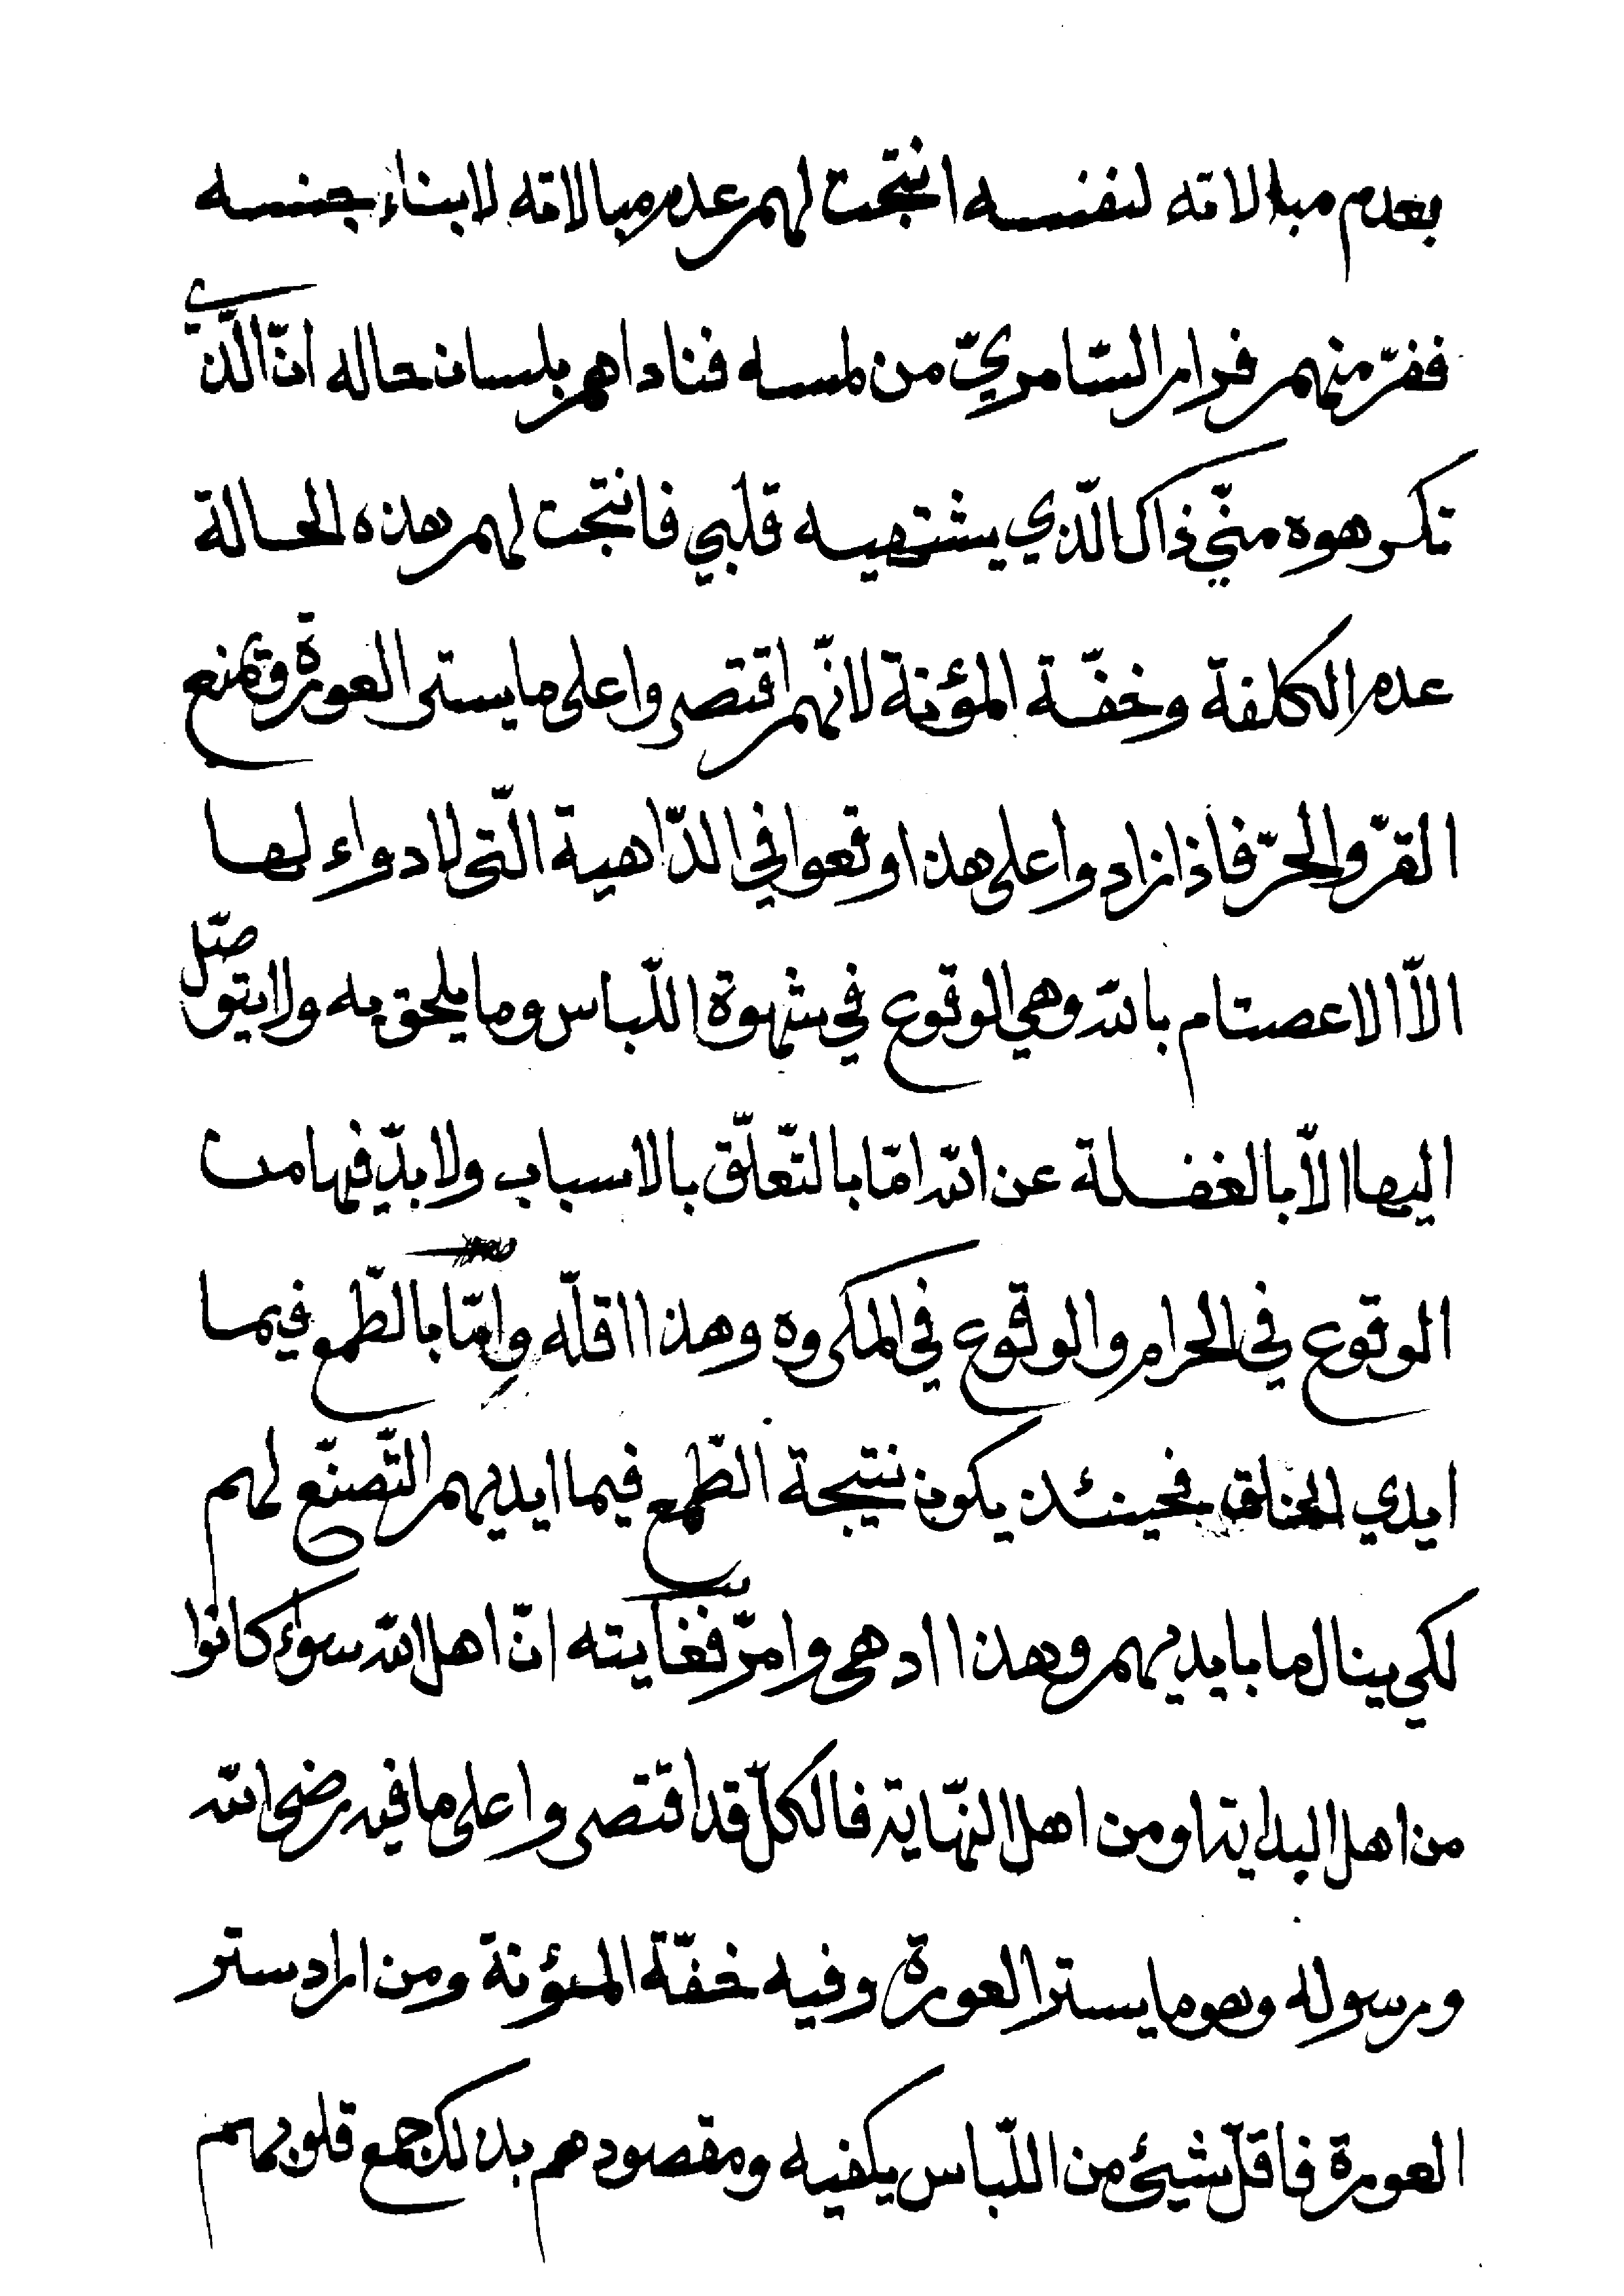 بعدم مبالاته لنفسه انتجت لهم عدم مبالاته لابناء جنسه
ففرّ منهم فرار السّامريّ من لمسه فناداهم بلسان حاله انّ الّذي
تكرهوه منّي ذاك الّذي يشتهيه قلبي فانتجت لهم هذه الحالة
عدم الكلفة وخفّة المؤنة لانّهم اقتصروا على ما يستر العورة ويمنع
القرّ والحرّ فاذا زادوا على هذا وقعوا في الدّاهية الّتي لا دواء لها
الاّ الاعصتام بالله وهي الوقوع في شهوة اللّباس وما يلحق به ولا يتوصّل
اليها الاّ بالغفلة عن الله امّا بالتّعلّق بالاسباب ولا بدّ فيها من
الوقوع في الحرام والوقوع في المكروه وهذا اقلّه وامّا بالطّمع فيما
ايدي الخلق فحينئذ يكون نتيجة الطّمع فيما ايديهم التّصنّع لهم
لكي ينال ما بايديهم وهذا ادهى وامرّ فغايته انّ اهل الله سواء كانوا
من اهل البداية او من اهل النّهاية فالكلّ قد اقتصروا على ما فيه رضى الله
ورسوله وهو ما يستر العورة وفيه خفّة المئونة ومن اراد ستر
العورة فاقلّ شيئ من اللّباس يكفيه ومقصودهم بذلك جمع قلوبهم